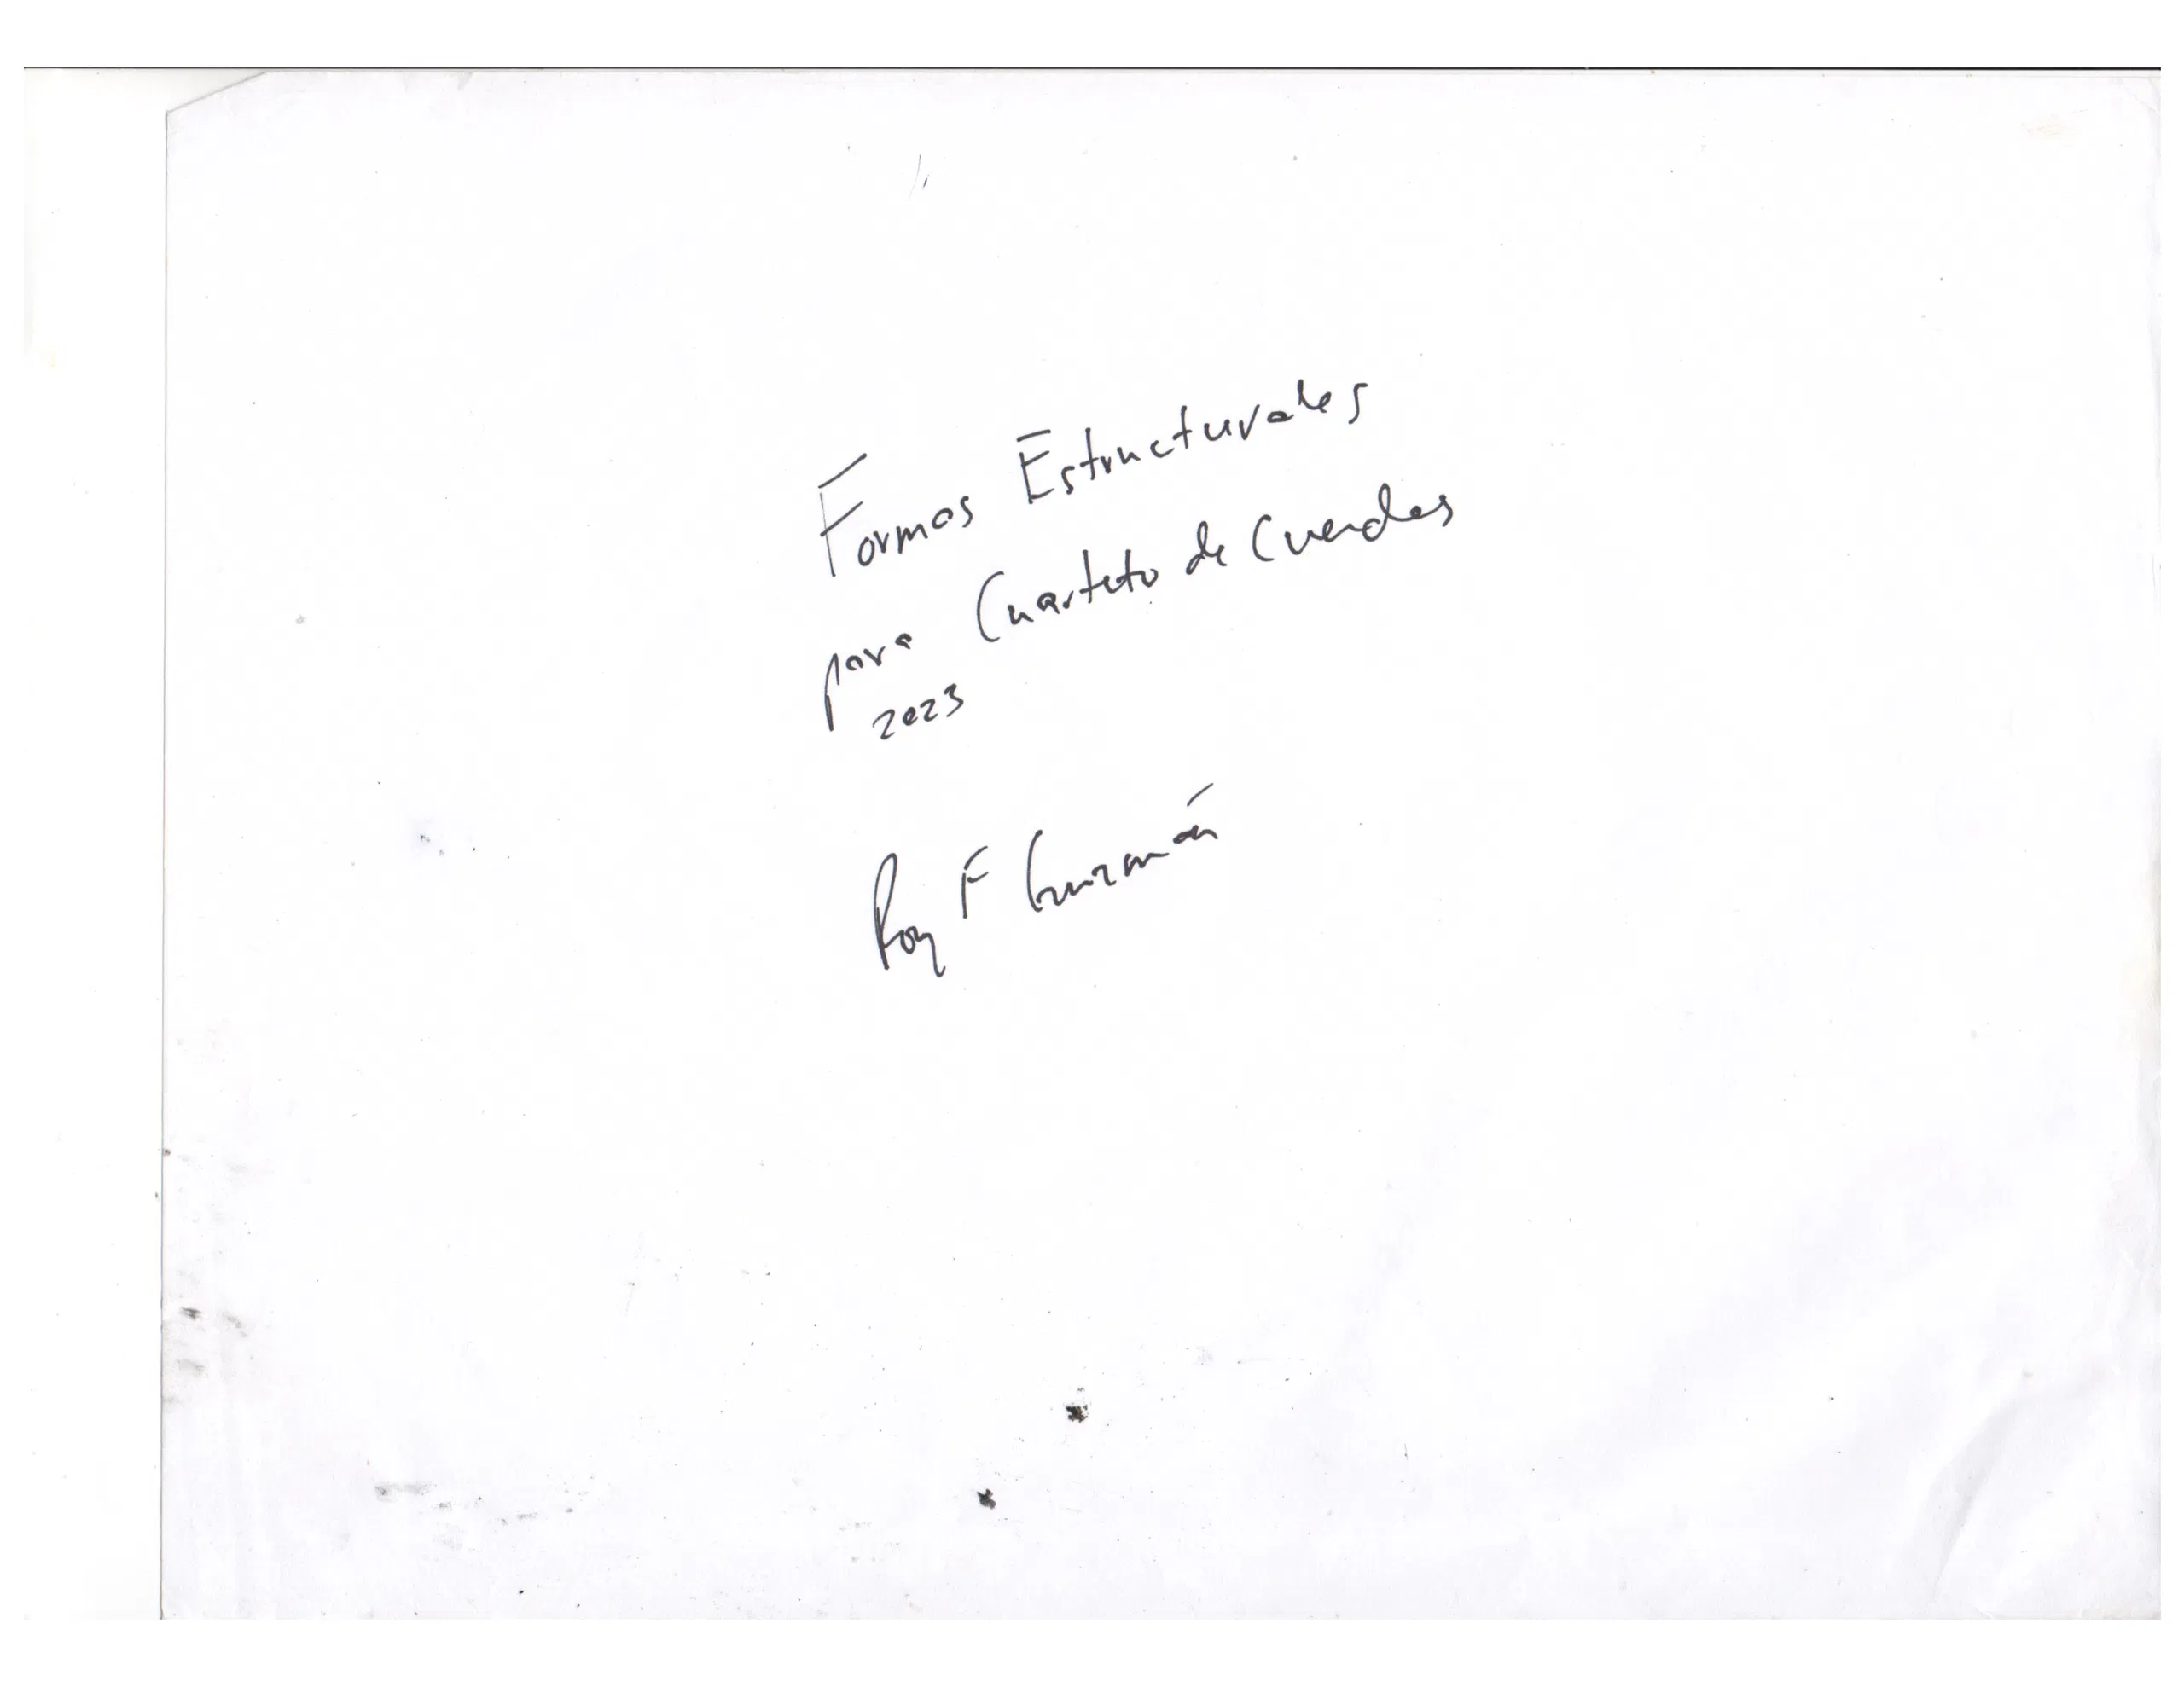 Formas Estructurales
para Cuarteto de Cuerdas
2023
Roy F Guzmán